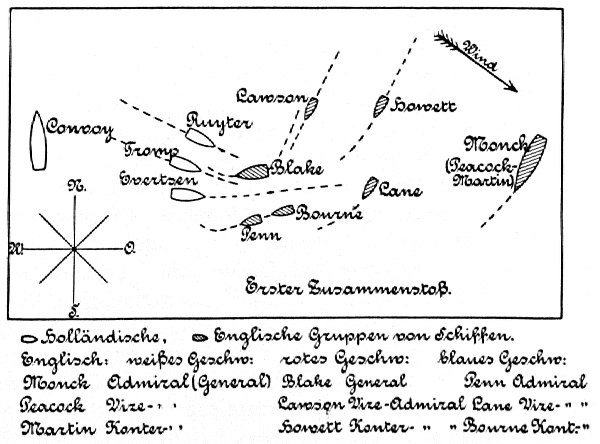 Wind
Lawson
Howett
Ruyter
Convoy
Tromp
Monck
(Peacock-
Martin)
Blake
Evertsen
Lane
N.
Bourne
Penn
W. O.
Erster Zusammenstoß.
S.
Holländische, Englische Gruppen von Schiffen.
Englisch: weißes Geschw: rotes Geschw: blaues Geschw:
Monck Admiral (General) Blake General Penn Admiral
Peacock Vize- " " Lawson Vize-Admiral Lane Vize- " "
Martin Konter- " " Howett Konter- " " Bourne Kont- " "